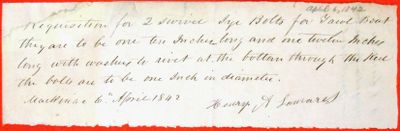 April 6, 1842
Requisition for 2 swivel Eye Bolts for Jawl Boat
they are to be one ten Inches long and one twelve Inches
long with washers to rivet at the bottom through the Keel
the bolts are to be one Inch in diameter
6th April 1842
Henry A